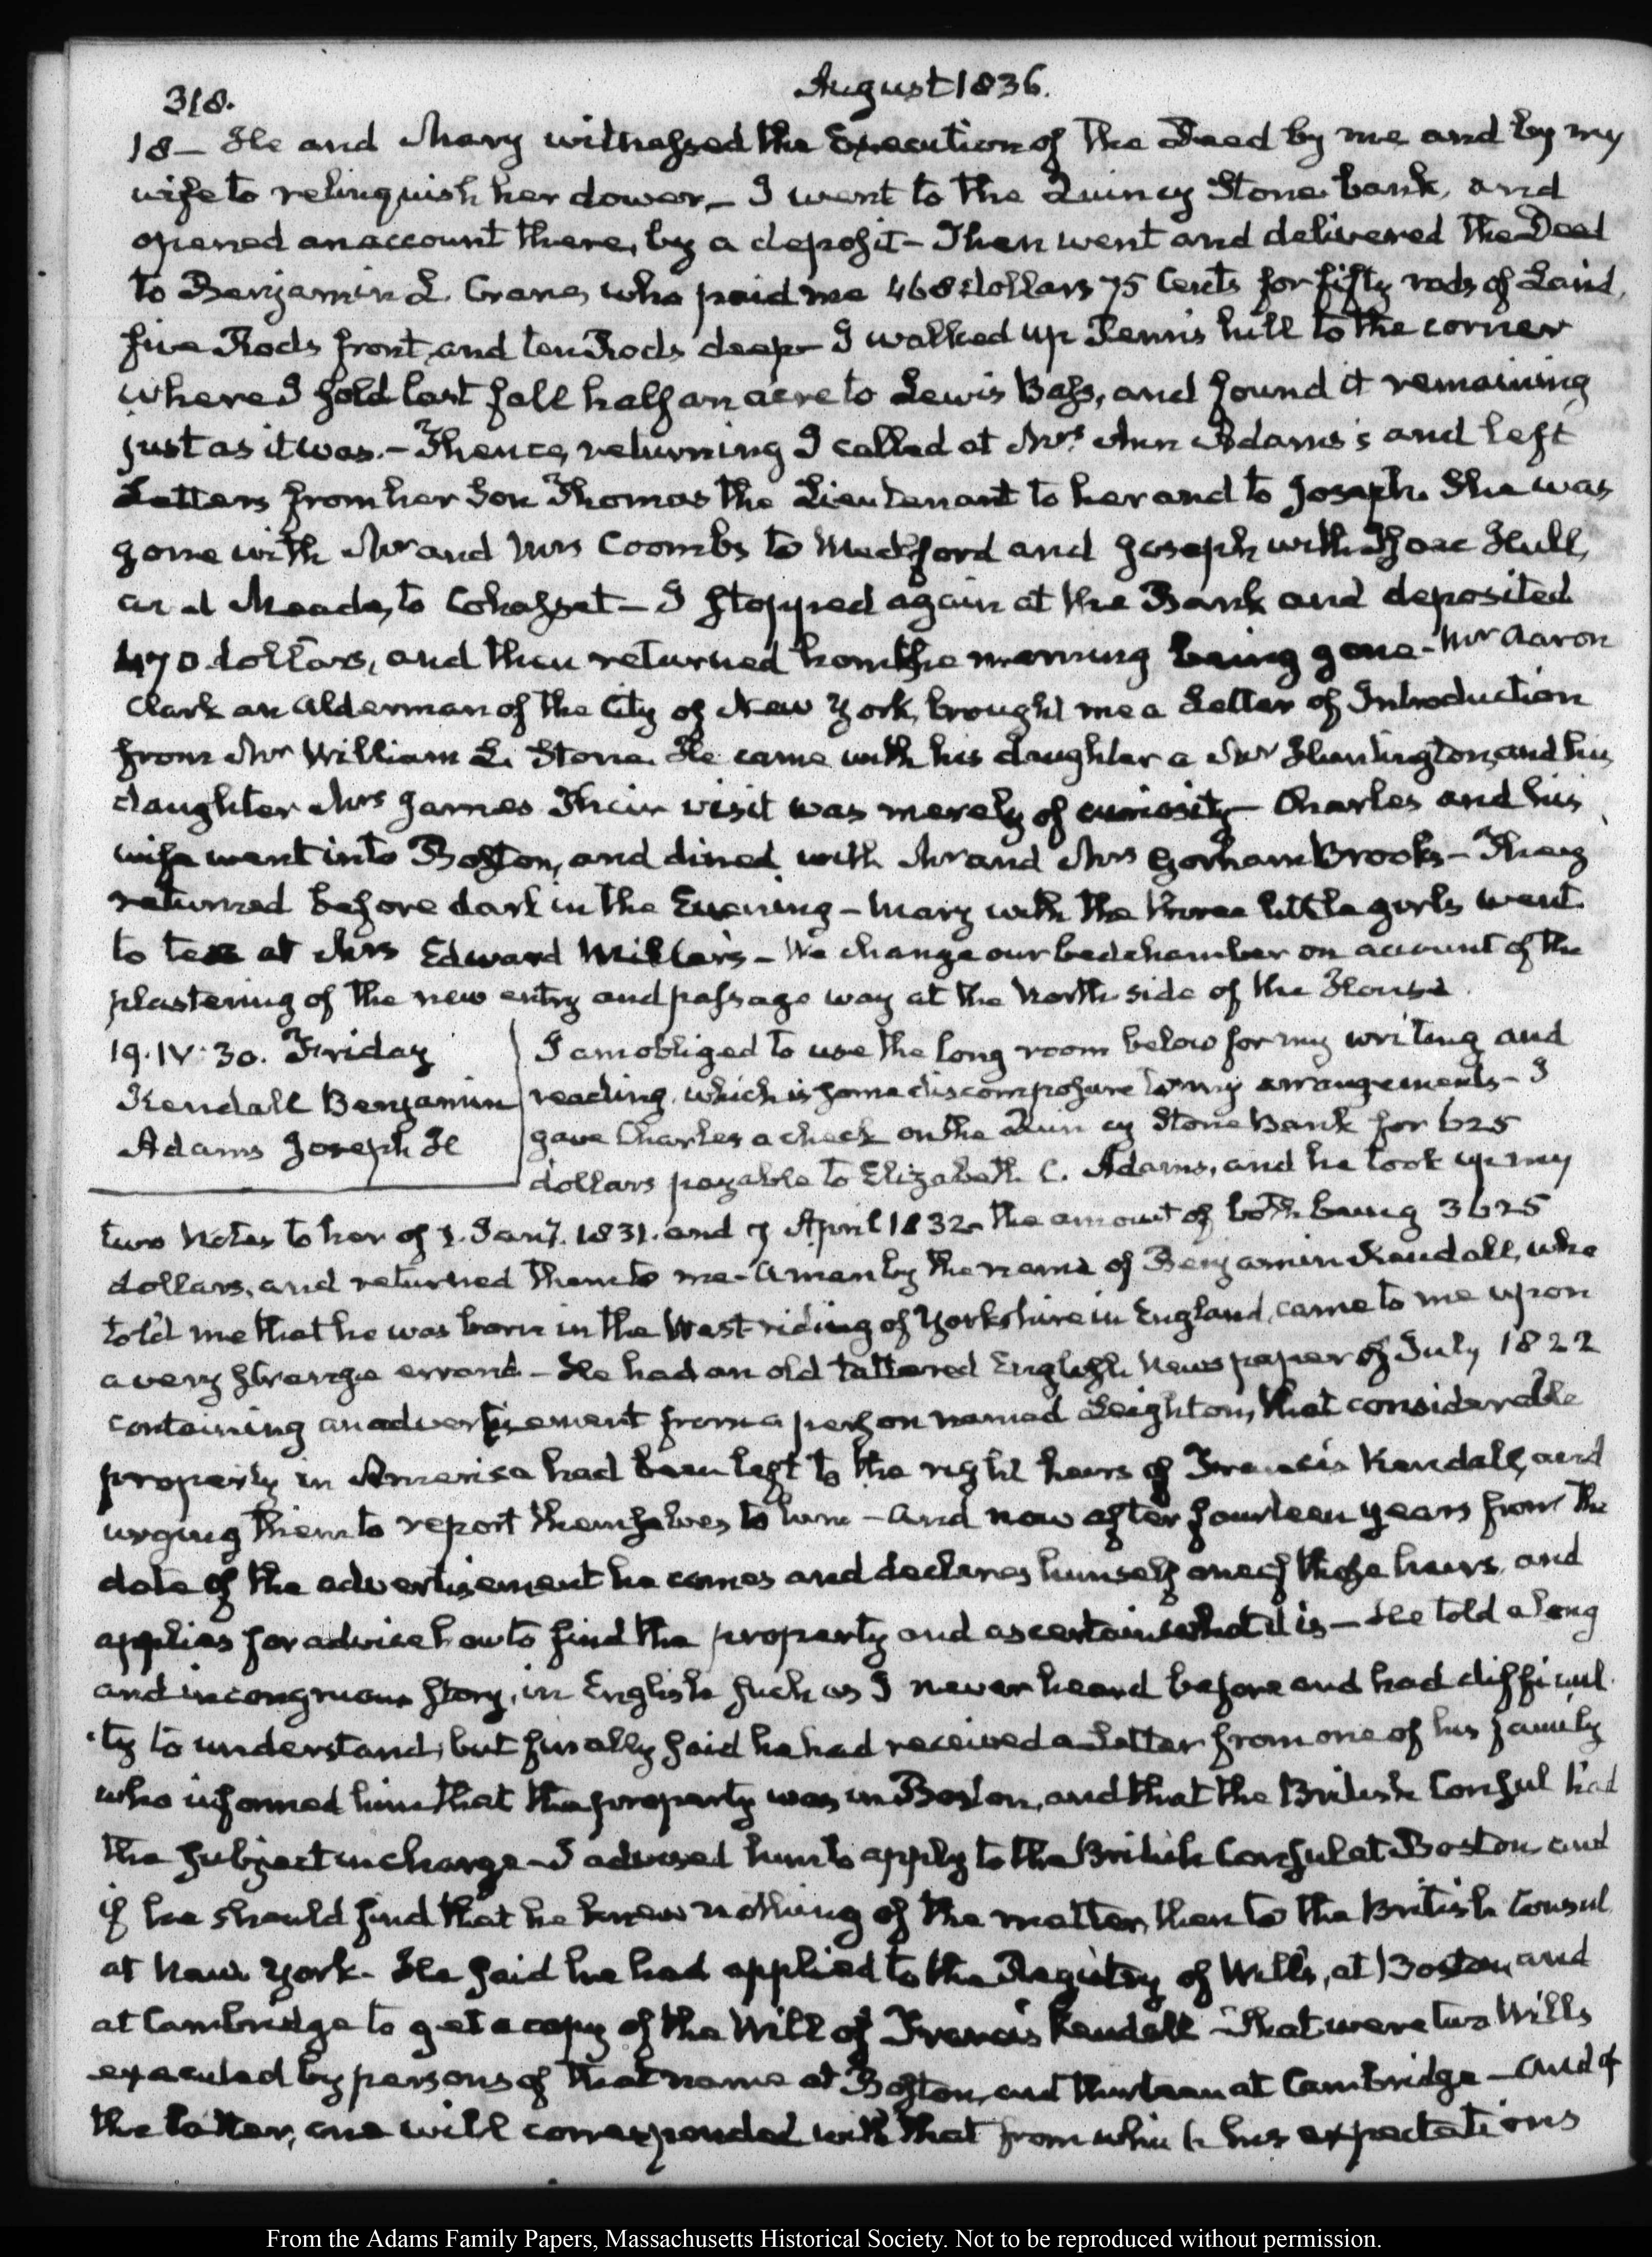 318.
August 1836.
18 — He and Mary witnessed the Execution of the Deed by me and by my
wife to relinquish her dower. — I went to the Quincy Stone bank, and
opened an account there, by a deposit — Then went and delivered the Deed
to Benjamin L. Crane, who paid me 468 dollars 75 Cents for fifty rods of Land,
five Rods front, and ten Rods deep — I walked up Penn's hill to the corner
where I sold last fall half an acre to Lewis Bass, and found it remaining
just as it was. — Thence, returning I called at Mrs. Ann Adams's and left
Letters from her Son Thomas the Lieutenant to her and to Joseph. She was
gone with Mr and Mrs Coombs to Medford and Joseph with Hull,
and Meade, to Cohasset — I stopped again at the Bank and deposited
470 dollars, and then returned home the morning being gone — Mr Aaron
Clark an Alderman of the City of New York, brought me a Letter of Introduction
from Mr William L. Stone. He came with his daughter a Mr Huntington, and his
daughter Mrs James Their visit was merely of curiosity — Charles and his
wife went into Boston, and dined with Mr and Mrs Gorham Brooks — They
returned before dark in the Evening — Mary with the three little girls went
to tea at Mrs Edward Miller's — We change our bedchamber on account of the
plastering of the new entry and passage way at the North side of the House.
19. IV:30. Friday
Kendall Benjamin
Adams Joseph H
I am obliged to use the long room below for my writing and
reading, which is some discomposure to my arrangements — I
gave Charles a check on the Quincy Stone Bank for 625
dollars payable to Elizabeth C. Adams, and he took up my
two Notes to her of 1. Jany. 1831. and 7 April 1832. the amount of both being 3625
dollars, and returned them to me — A man by the name of Benjamin Kendall, who
told me that he was born in the West-riding of Yorkshire in England, came to me upon
a very strange errand — He had an old tattered English Newspaper of July 1822
containing an advertisement from a person named Leighton, that considerable
property in America had been left to the right heirs of Francis Kendall, and
urging them to report themselves to him — and now after fourteen years from the
date of the advertisement he comes and declares himself one of those heirs, and
applies for advice how to find the property and ascertain what it is — He told a long
and incongruous story, in English such as I never heard before and had difficul
-ty to understand, but finally said he had received a Letter from one of his family
who informed him that the property was in Boston, and that the British Consul had
the subject in charge — I advised him to apply to the British Consul at Boston and
if he should find that he knew nothing of the matter, then to the British Consul
at New York — He said he had applied to the Registry of Wills, at Boston and
at Cambridge to get a copy of the Will of Francis Kendall — That were two Wills
executed by persons of that name at Boston, and thirteen at Cambridge — and of
the latter, one will corresponded with that from which his expectations
From the Adams Family Papers, Massachusetts Historical Society. Not to be reproduced without permission.